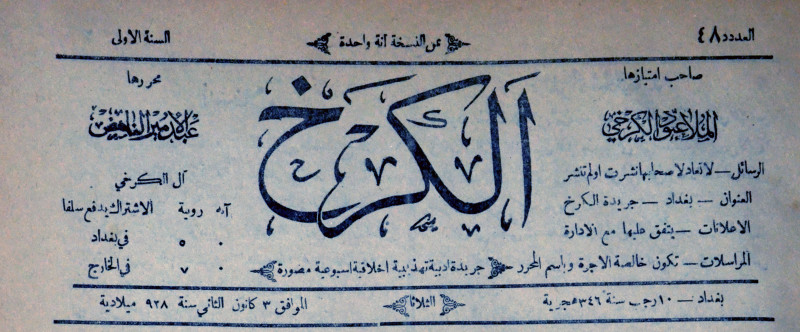 العدد ٤٨
ثمن النسخة آنة واحدة
السنة الاولى
صاحب امتيازها
الملا عبود الكرخي
الكرخ
محررها
عبد الامير الناهض
الرسائل — لا تعاد لاصحابها نشرت او لم تنشر
العنوان — بغداد — جريدة الكرخ
الاعلانات — يتفق عليها مع الادارة
المراسلات — تكون خالصة الاجرة وباسم المحرر
آل الكرخي
آنه روبية الاشتراك يدفع سلفا
٠ ٥ في بغداد
٠ ٧ في الخارج
جريدة ادبية تهذيبية اخلاقية اسبوعية مصورة
بغداد — ١٠ رجب سنة ٣٤٦ هجرية
الثلاثا
الموافق ٣ كانون الثاني سنة ٩٢٨ ميلادية